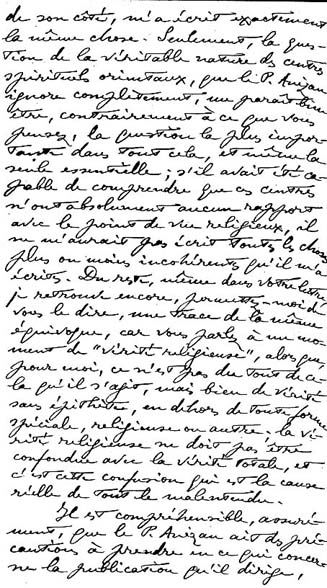 de son côté, m'a écrit exactement
la même chose. Seulement, la ques-
tion de la véritable nature des centres
spirituels orientaux, que le P. Anizan
ignore complètement, me paraît bien
être, contrairement à ce que vous
pensez, la question la plus impor-
tante dans tout cela, et même la
seule essentielle ; s'il avait été ca-
pable de comprendre que ces centres
n'ont absolument aucun rapport
avec le point de vue religieux, il
ne m'aurait pas écrit toutes les choses
plus ou moins incohérentes qu'il m'a
écrites. Du reste, même dans votre lettre
je retrouve encore, permettez-moi de
vous le dire, une trace de la même
équivoque, car vous parlez à un mo-
ment de "vérité religieuse", alors que,
pour moi, ce n'est pas du tout de ce-
la qu'il s'agit, mais bien de vérité
sans épithète, en dehors de toute forme
spéciale, religieuse ou autre. La vé-
rité religieuse ne doit pas être
confondue avec la vérité totale, et
c'est cette confusion qui est la cause
réelle de tout le malentendu.
Il est compréhensible, assuré-
ment, que le P. Anizan ait des pré-
cautions à prendre en ce qui concer-
ne la publication qu'il dirige,